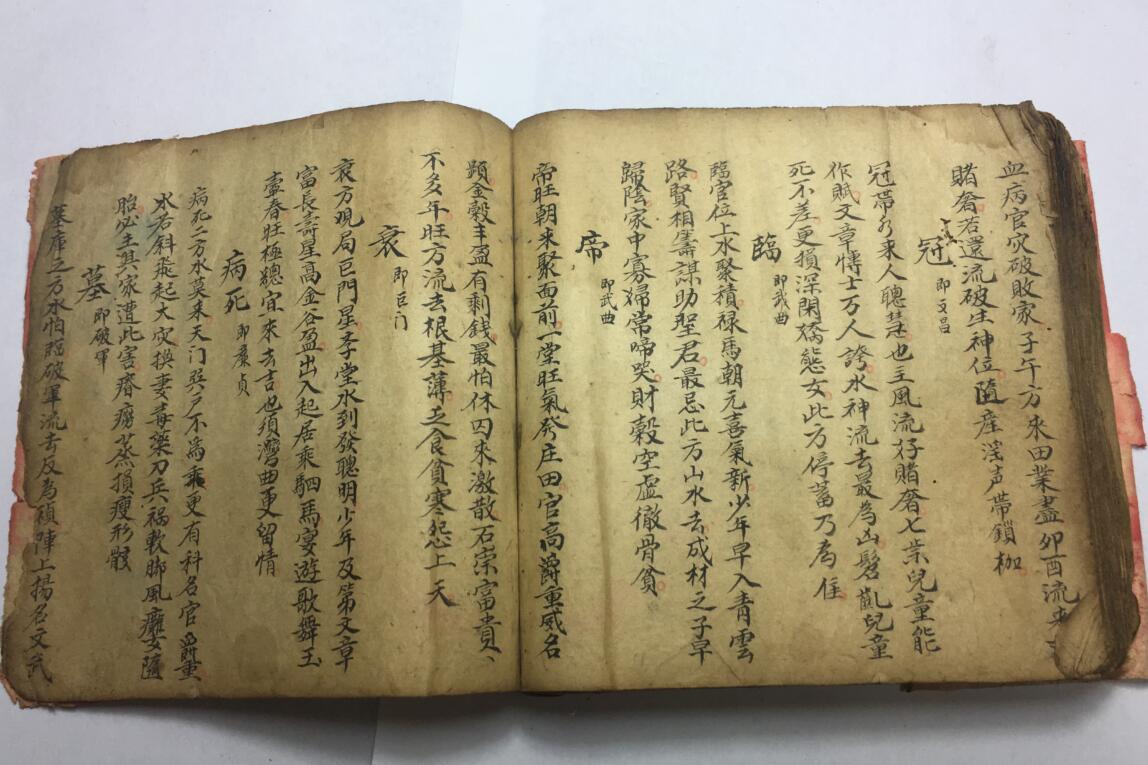 血病官灾破敗家子午方來田業盡卯酉流來
賭奢若還流破生神位墮産淫声帶鎖枷
冠 即文昌
冠帶水來人聰慧也主風流好賭奢七歲兒童能
作賦文章博士万人誇水神流去最為凶髫齓兒童
死不差更損深閨嬌態女此方停蓄乃為佳
臨 即武曲
臨官位上水聚積禄馬朝元喜氣新少年早入青雲
路賢相籌謀助聖君最忌此方山水去成材之子早
歸陰家中寡婦常啼哭財穀空虛徹骨貧
帝 即武曲
帝旺朝來聚面前一堂旺氣発庄田官高爵重威名
顕金穀丰盈有剩錢最怕休囚來激散石崇富貴、
不多年旺方流去根基薄乏食貧寒怨上天
衰 即巨门
衰方覌局巨門星李堂水到發聰明少年及第文章
富長壽星高金谷盈出入起居乘駟馬宴遊歌舞玉
壷春旺極總宜來去吉也須灣曲更留情
病死 即廉貞
病死二方水莫来天门巽户不為乖更有科名官爵重
水若斜飛起大灾換妻毒藥刀兵禍軟脚風癱女墮
胎必主其家遭此害瘠癆蒸損瘦形骸
墓 即破軍
墓庫之方水怕臨破軍流去反為禎陣上揚名文武